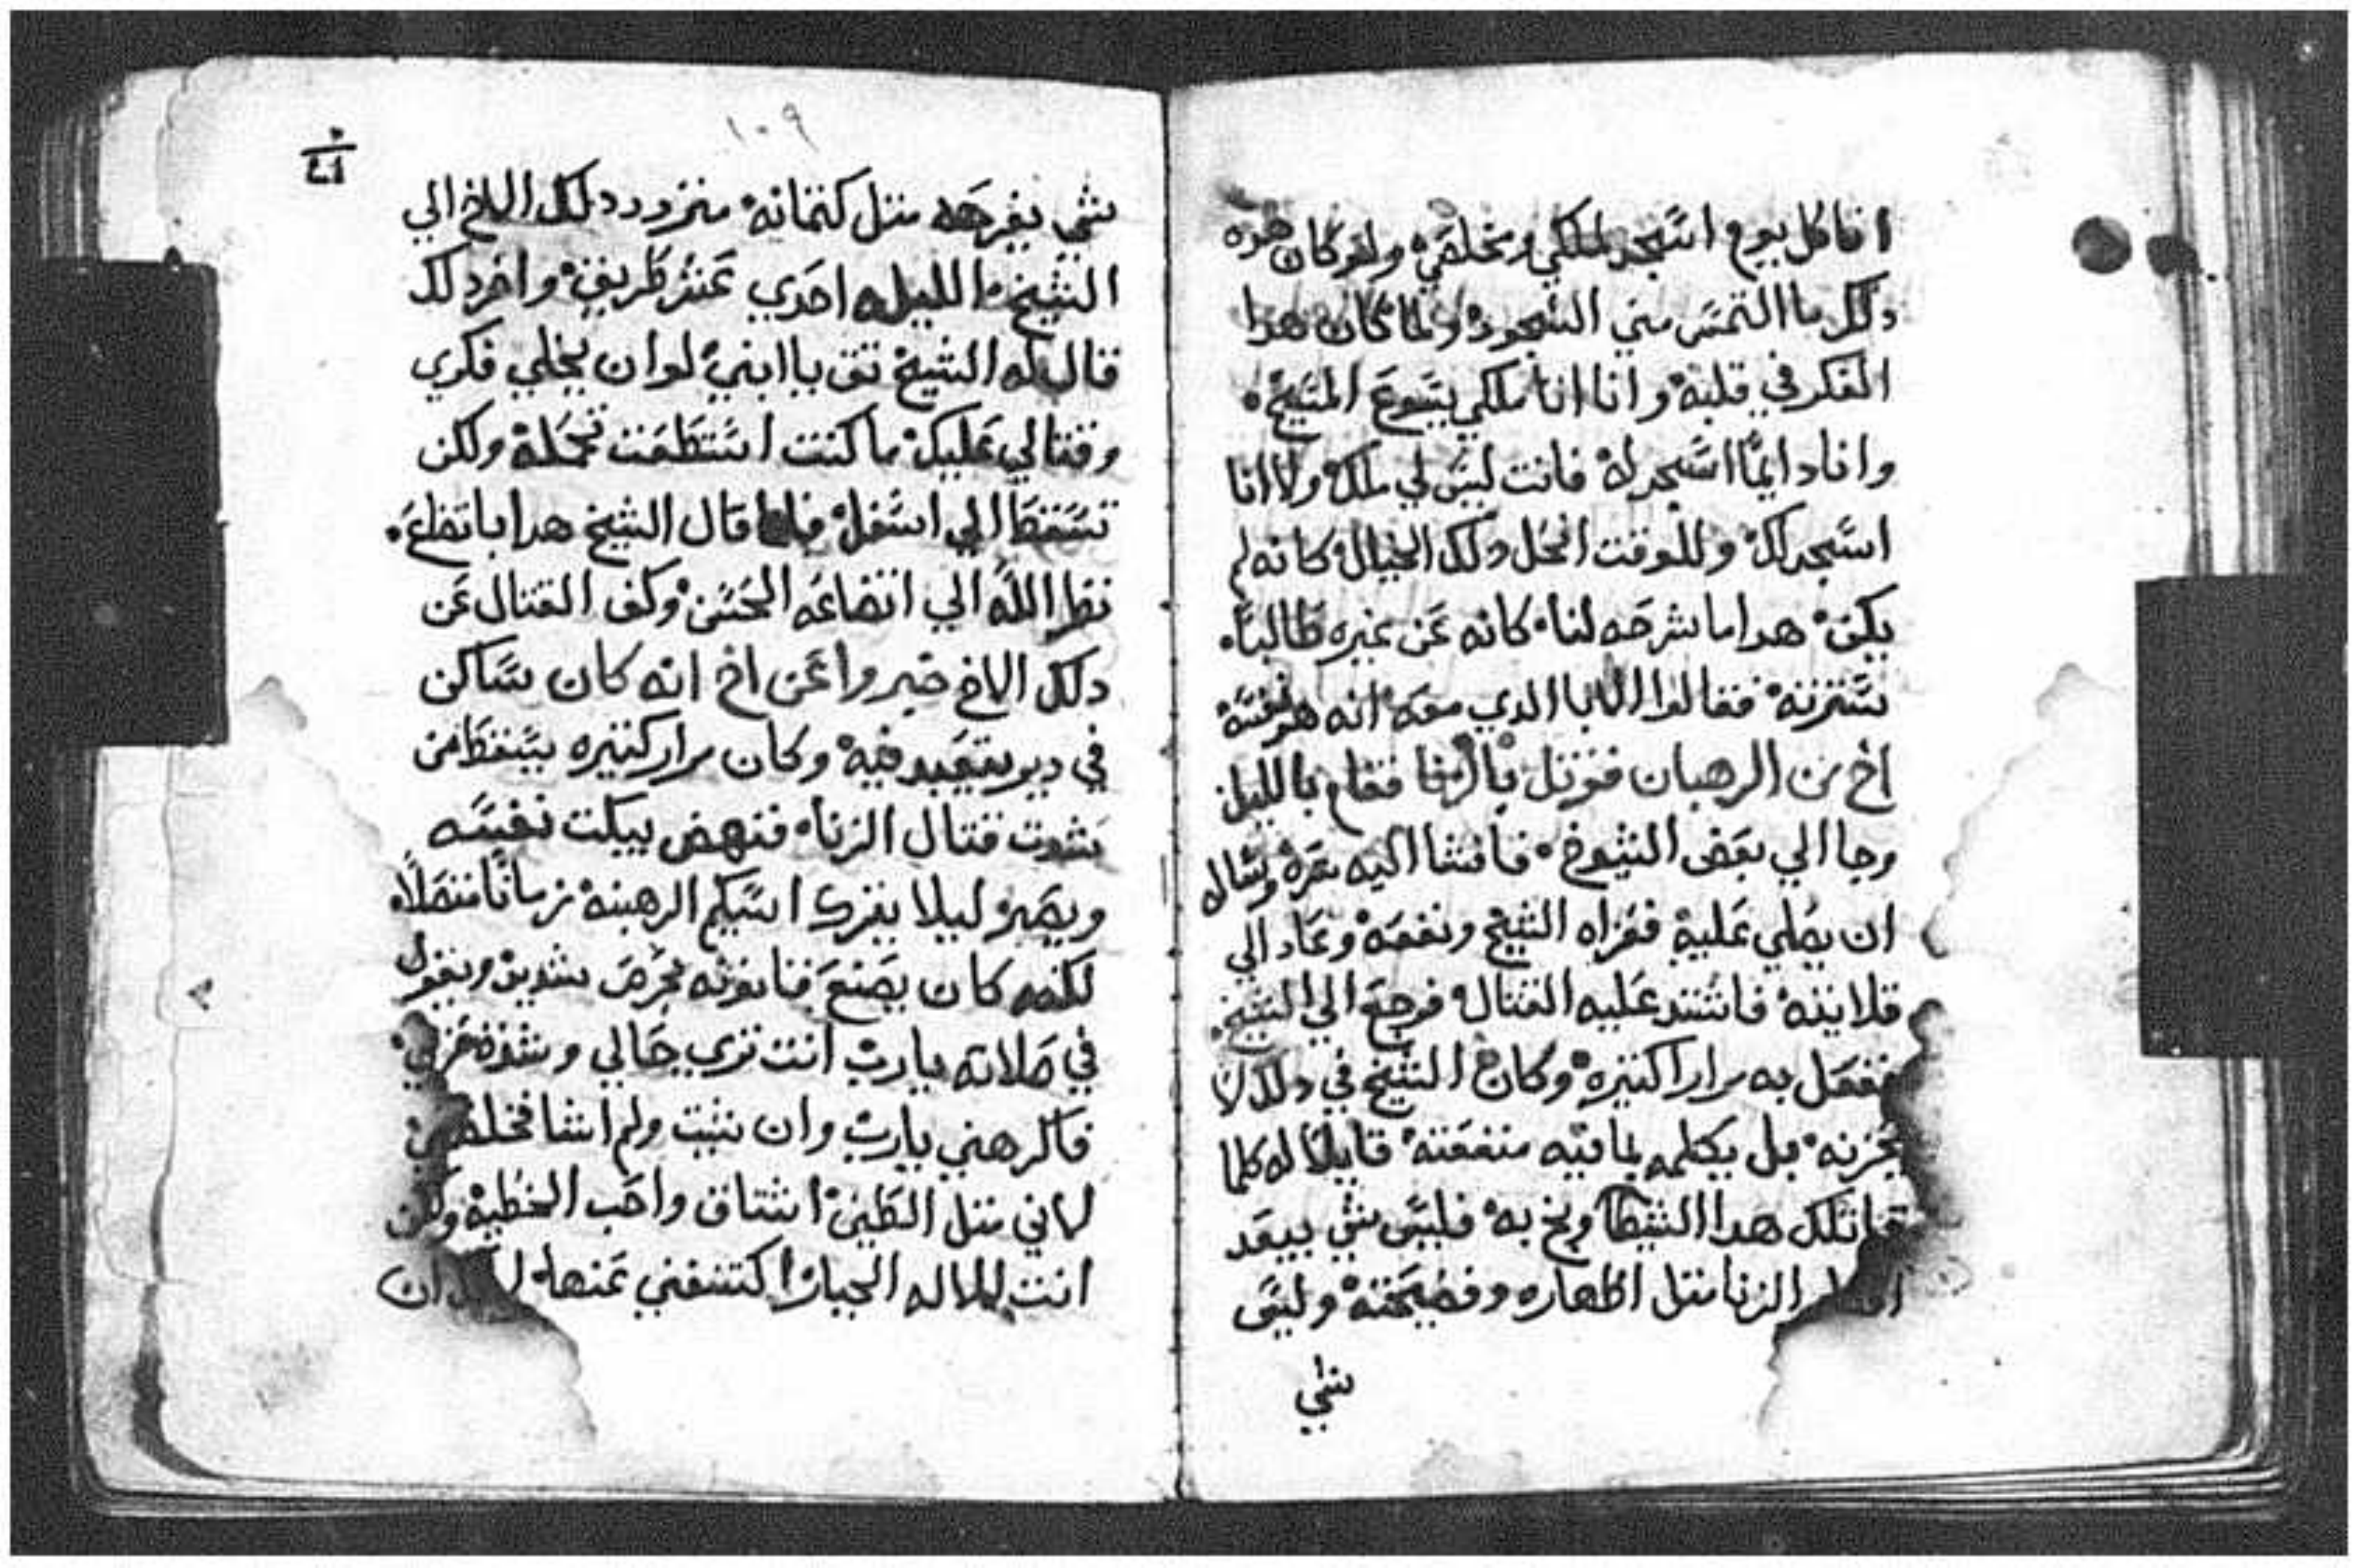 انا كل يوم اسجد لملكي ومخلصي ولو كان هذه
دلك ما التمس مني السجود ولما كان هدا
الفكر في قلبه وانا انا ملكي يسوع المسيح
وانا دايمًا اسجد له فانت ليس لي ملك ولا انا
اسجد لك وللوقت انحل دلك الخيال كانه لم
يكن هدا ما شرحه لنا كانه عن غيره طالبًا
سترته فقالوا الابا الدي معه انه هو نفسه
اخ من الرهبان قوتل بالزنا فقام بالليل
وجا الي بعض الشيوخ فافشا اليه سره وسال
ان يصلي عليه فعزاه الشيخ ونفعه وعاد الي
قلايته فاشتد عليه القتال فرجع الي الشيخ
ففعل به مرارا كتيره وكان الشيخ في دلك لا
يحزنه بل يكلمه بما فيه منفعته قايلًا له كلما
قاتلك هدا الشيطا وبخ به فليس شي يبعد
الزنا متل اظهاره وفضيحته وليس
شي
١٠٩
شي يفرحه متل كتمانه فتردد دلك الاخ الي
الشيخ الليله احدي عشر طريق واخر دلك
قال له الشيخ تق يا ابني لو ان يخلي فكري
وقتالي عليك ما كنت استطعت تحمله ولكن
تسقط الي اسفل فلما قال الشيخ هدا باتضاع
نظر الله الي اتضاعه الحسن وكف القتال عن
دلك الاخ خبروا عن اخ انه كان ساكن
في دير يتعبد فيه وكان مرار كتيره يسقط من
شدت قتال الزنا فنهض يبكت نفسه
ويصبر ليلا يترك اسكيم الرهبنه زمانًا متصلًا
لكنه كان يصنع قانونه بحرص شديد ويقول
في صلاته يارب انت تري حالي وشدة حزني
فاكرهني يارب وان شيت ولم اشا فخلصني
لاني متل الطين اشتاق واحب الخطيه ولكن
انت الاله الجبار اكتشفني عنها ان